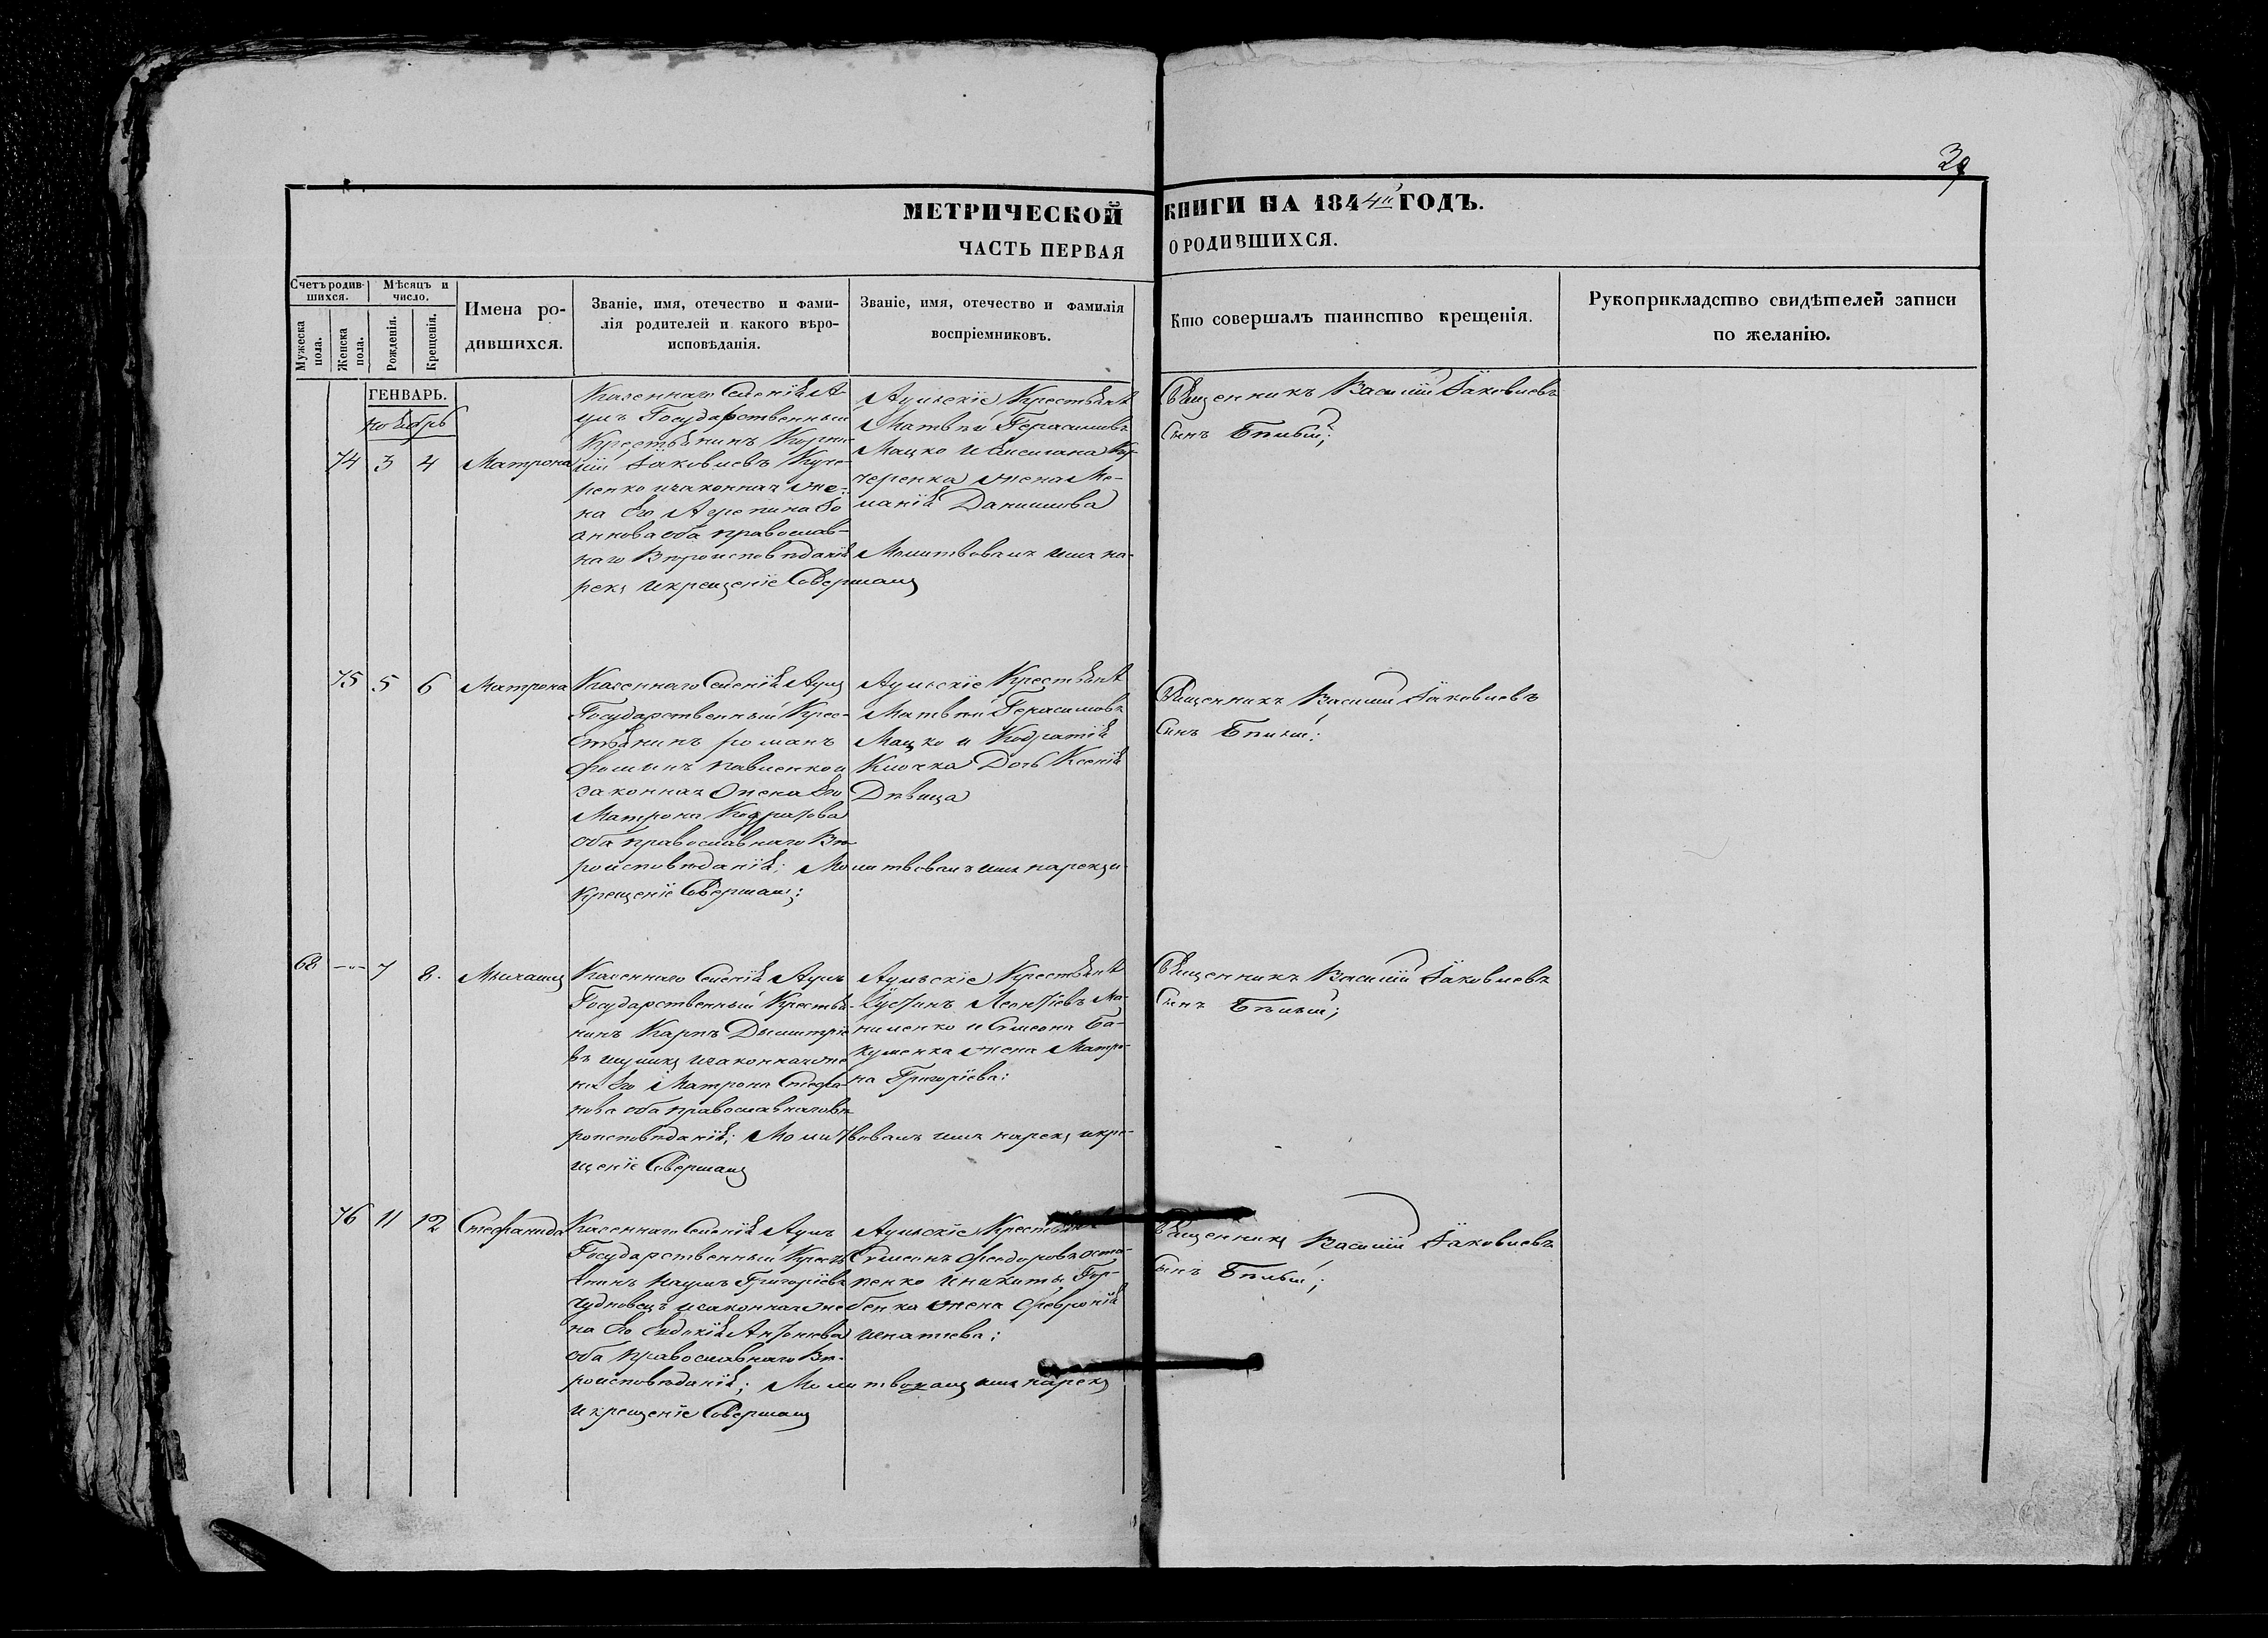 39
МЕТРИЧЕСКОЙ КНИГИ НА 1844 ГОДЪ.
ЧАСТЬ ПЕРВАЯ О РОДИВШИХСЯ.
Счетъ родившихся.
Мужеска пола.
Женска пола.
Мѣсяцъ и число.
Рожденія.
Крещенія.
Имена родившихся.
Званіе, имя, отечество и фами-
лія родителей и какого вѣро-
исповѣданія.
Званіе, имя, отечество и фамилія
воспріемниковъ.
Кто совершалъ таинство крещенія.
Рукоприкладство свидѣтелей записи
по желанію.
ГЕНВАРЬ.
ноябрь
74 3 4 Матрона
Казеннаго Селенія А-
улъ Государственный
Крестьянинъ Корни-
лій Яковлевъ Куче-
ренко и законная же-
на его Агрепина Іо-
аннова оба православ-
наго Вѣроисповѣданія
Аульскіе Крестьяне
Матвѣй Герасимовъ
Мацко и
черенка жена Ме-
ланія Данилова
Молитвовалъ имя на-
рекъ и крещеніе Совершалъ
Священникъ Василій Яковлевъ
Сынъ Бѣлый;
75 5 6 Матрона
Казеннаго Селенія Аулъ
Государственный Крес-
тьянинъ романъ
Фоминъ Павленко и
законная Жена его
Матрона Кодратова
оба православнаго Вѣ-
роисповѣданія; Молитвовалъ имя нарекъ и
Крещеніе Совершалъ;
Аульскіе Крестьяне
Матвѣй Герасимовъ
Мацко и Кодратія
Клочка Дочь Ксенія
Дѣвица
Священникъ Василій Яковлевъ
Сынъ Бѣлый:
68 7 8 Михаилъ
Казеннаго Селенія Аулъ
Государственный Крестья-
нинъ Карпъ Димитріе-
въ шуликъ и законная же-
на его Матрона Стефа-
нова оба православнаго вѣ-
роисповѣданія; Молитвовалъ имя нарекъ и кре-
щеніе Совершалъ
Аульскіе Крестьяне
Іустинъ Леонтіевъ Ма-
ниленко и Симеона Ба-
куменка жена Матро-
на Григоріева:
Священникъ Василій Яковлевъ
Сынъ Бѣлый;
76 11 12 Стефанида
Казеннаго Селенія Аулъ
Государственный Кресть-
янинъ Наумъ Григоріевъ
и законная же-
на его Евдокія Антоніева
оба Православнаго Вѣ-
роисповѣданія; Молитвовалъ имя нарекъ
и крещеніе Совершалъ
Аульскіе Крестьяне
Симеонъ Феодоровъ Оста-
пенко и никиты Гор-
бенка жена Феврокія
Игнатіева:
Священникъ Василій Яковлевъ
Сынъ Бѣлый;